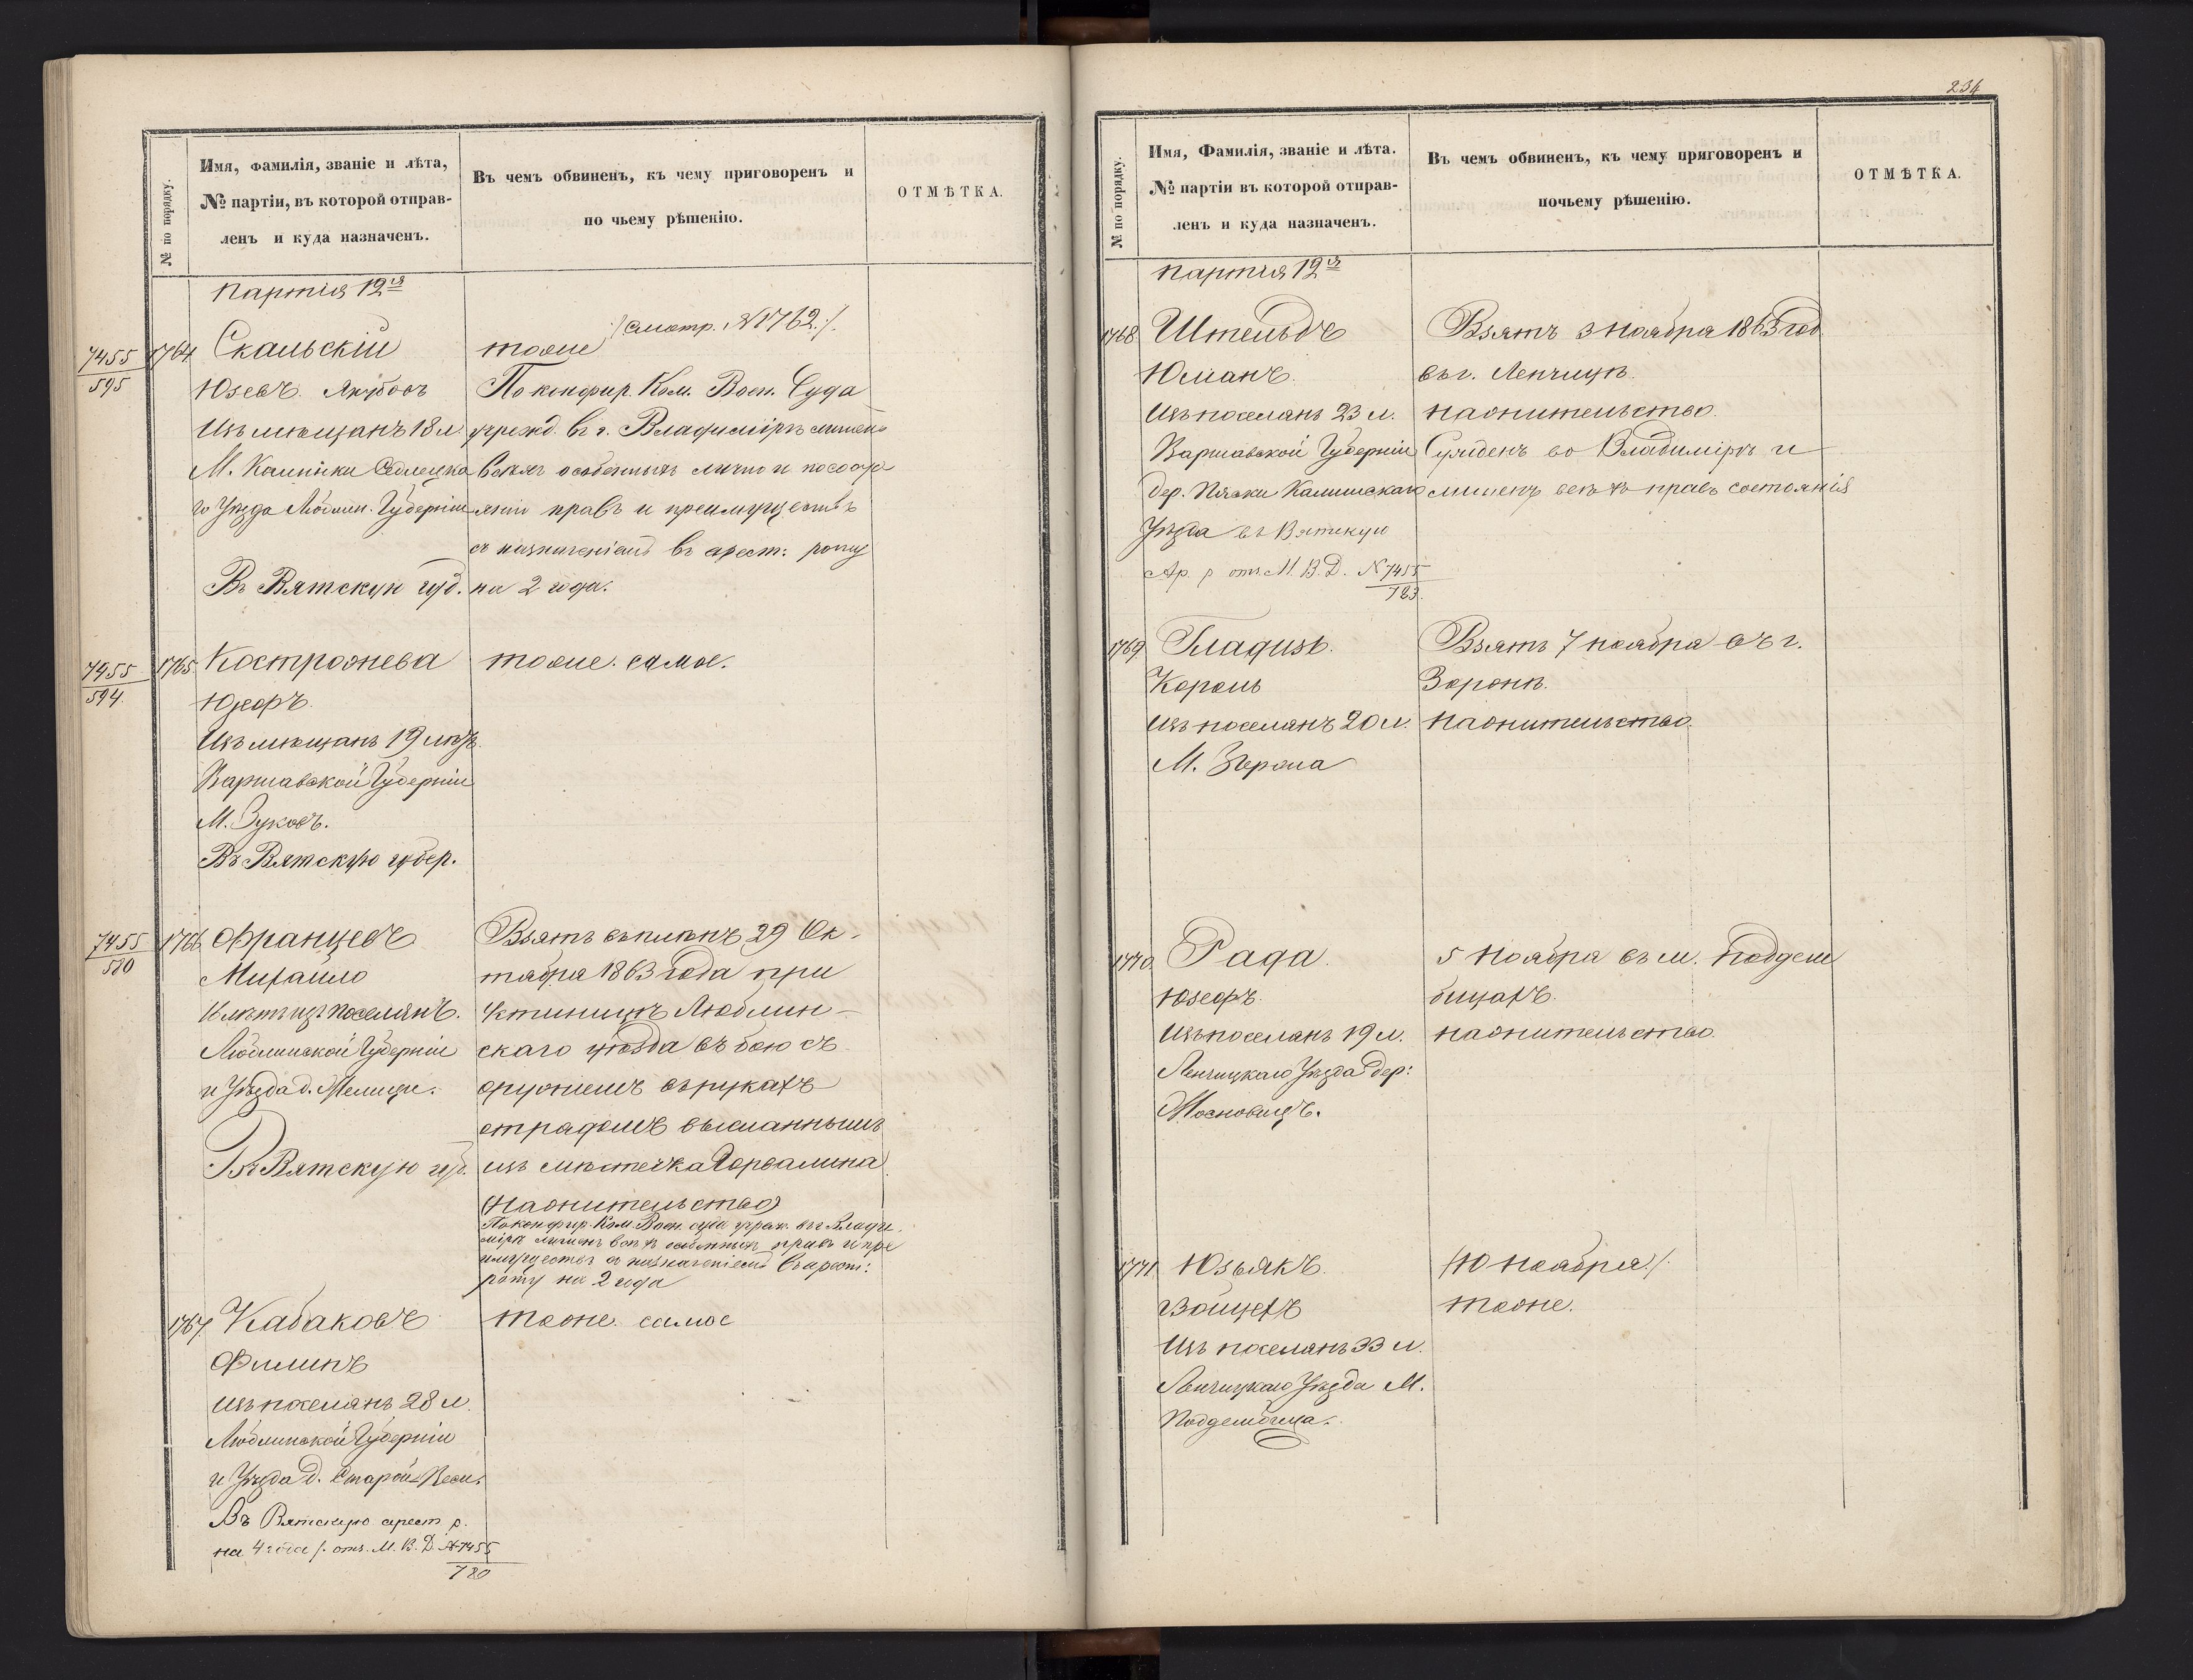 № по порядку.
Имя, фамилія, званіе и лѣта,
№ партіи, въ которой отправ-
ленъ и куда назначенъ.
Въ чемъ обвиненъ, къ чему приговоренъ и
по чьему рѣшенію.
ОТМѢТКА.
Партія 12я
/:смотр. №1762:/.
7455
595
1764
Скальскій
тоже
Юзевъ Якубовъ
По конфир. Ком. Воен. Суда
Изъ мѣщанъ 18 л.
учрежд. въ г. Владимірѣ лишенъ
М.
всѣхъ особенныхъ лично и по состо
го Уѣзда Люблин. Губерніи
янію правъ и преимуществъ
съ назначеніемъ въ арест: роту
Въ Вятскую губ.
на 2 года.
7455
594
1765
Костржева
тоже самое.
Юзефъ
Изъ мѣщанъ 19 лѣтъ
Варшавской Губерніи
М. Зуковъ.
Въ Вятскую губер.
7455
580
1766
Францевъ
Взятъ въ плѣнъ 29 Ок-
Михаило
тября 1863 года при
лѣтъ изъ поселянъ.
Люблин-
Люблинской Губерніи
скаго уѣзда въ бою съ
и Уѣзда д.
оружіемъ въ рукахъ
отрядомъ высланнымъ
Въ Вятскую губ.
изъ мѣстечка
(Наднительство)
По конфир. Ком. Воен. суда учреж. въ г. Влади
мірѣ лишенъ всѣхъ особенныхъ правъ и пре
имуществъ съ назначеніемъ въ арест:
роту на 2 года
1767
Кабаковъ
тоже самое
Филипъ
изъ поселянъ 28 л.
Люблинской Губерніи
и Уѣзда д. Старой Веси.
Въ Вятскую арест р.
на 4 года /. отн. М. В. Д. №7455
780
234
№ по порядку.
Имя, Фамилія, званіе и лѣта.
№ партіи въ которой отправ-
ленъ и куда назначенъ.
Въ чемъ обвиненъ, къ чему приговоренъ и
почьему рѣшенію.
ОТМѢТКА.
партія 12я
1768
Штельдъ
Взятъ 3 Ноября 1863 год
Юлианъ.
въ г. Ленчицѣ.
Изъ поселянъ 23 л.
Наднительство.
Варшавской Губерніи
Сужденъ во Владимірѣ и
дер. Пяски Калишскаго
лишенъ всѣхъ правъ состоянія
Уѣзда въ Вятскую
Ар. р отн. М. В. Д. №7455
783.
1769
Гладизь.
Взятъ 7 ноября въ г.
Король
Изъ поселянъ 20 л.
Наднительство.
М.
1770
Рада.
5 Ноября въ м. Поддем
Юзефъ.
бицахъ.
Изъ поселянъ 19 л.
Наднительство.
Ленчицкаго Уѣзда дер:
1771
Юзьякъ.
/10 Ноября/.
Войцехъ
тоже.
Изъ поселянъ 33 л.
Ленчицкаго Уѣзда М.
Поддембица.